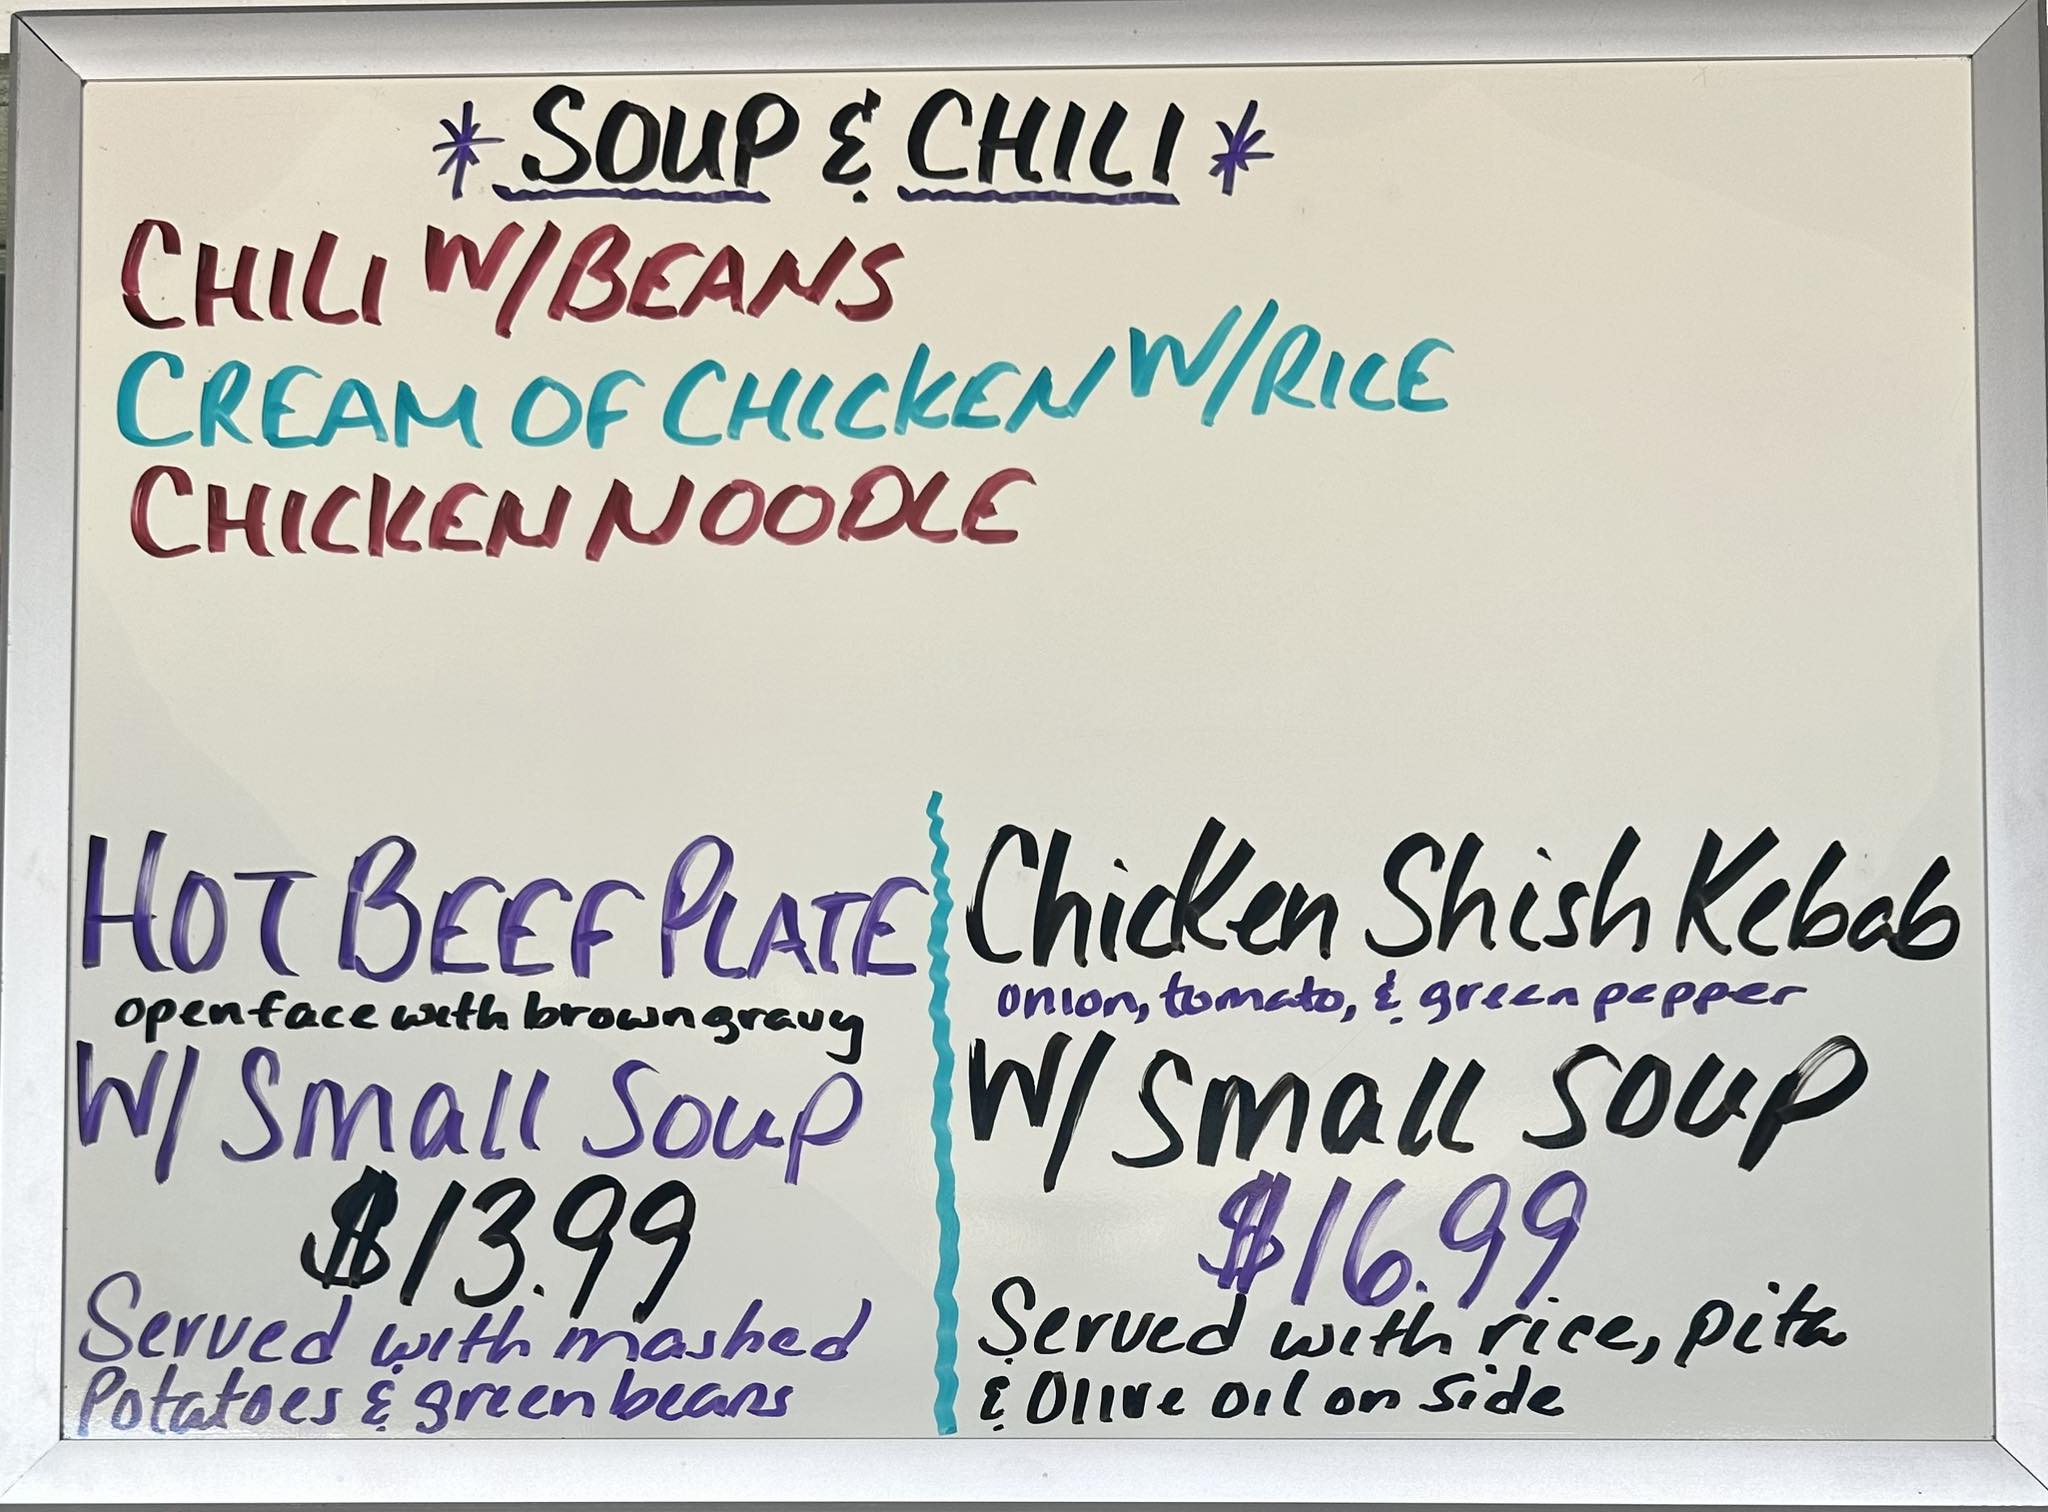 * SOUP & CHILI *
CHILI W/BEANS
CREAM OF CHICKEN W/RICE
CHICKEN NOODLE
HOT BEEF PLATE
open face with brown gravy
W/ Small Soup
$13.99
Served with mashed
Potatoes & green beans
Chicken Shish Kebab
onion, tomato, & green pepper
W/ Small Soup
$16.99
Served with rice, pita
& Olive oil on side